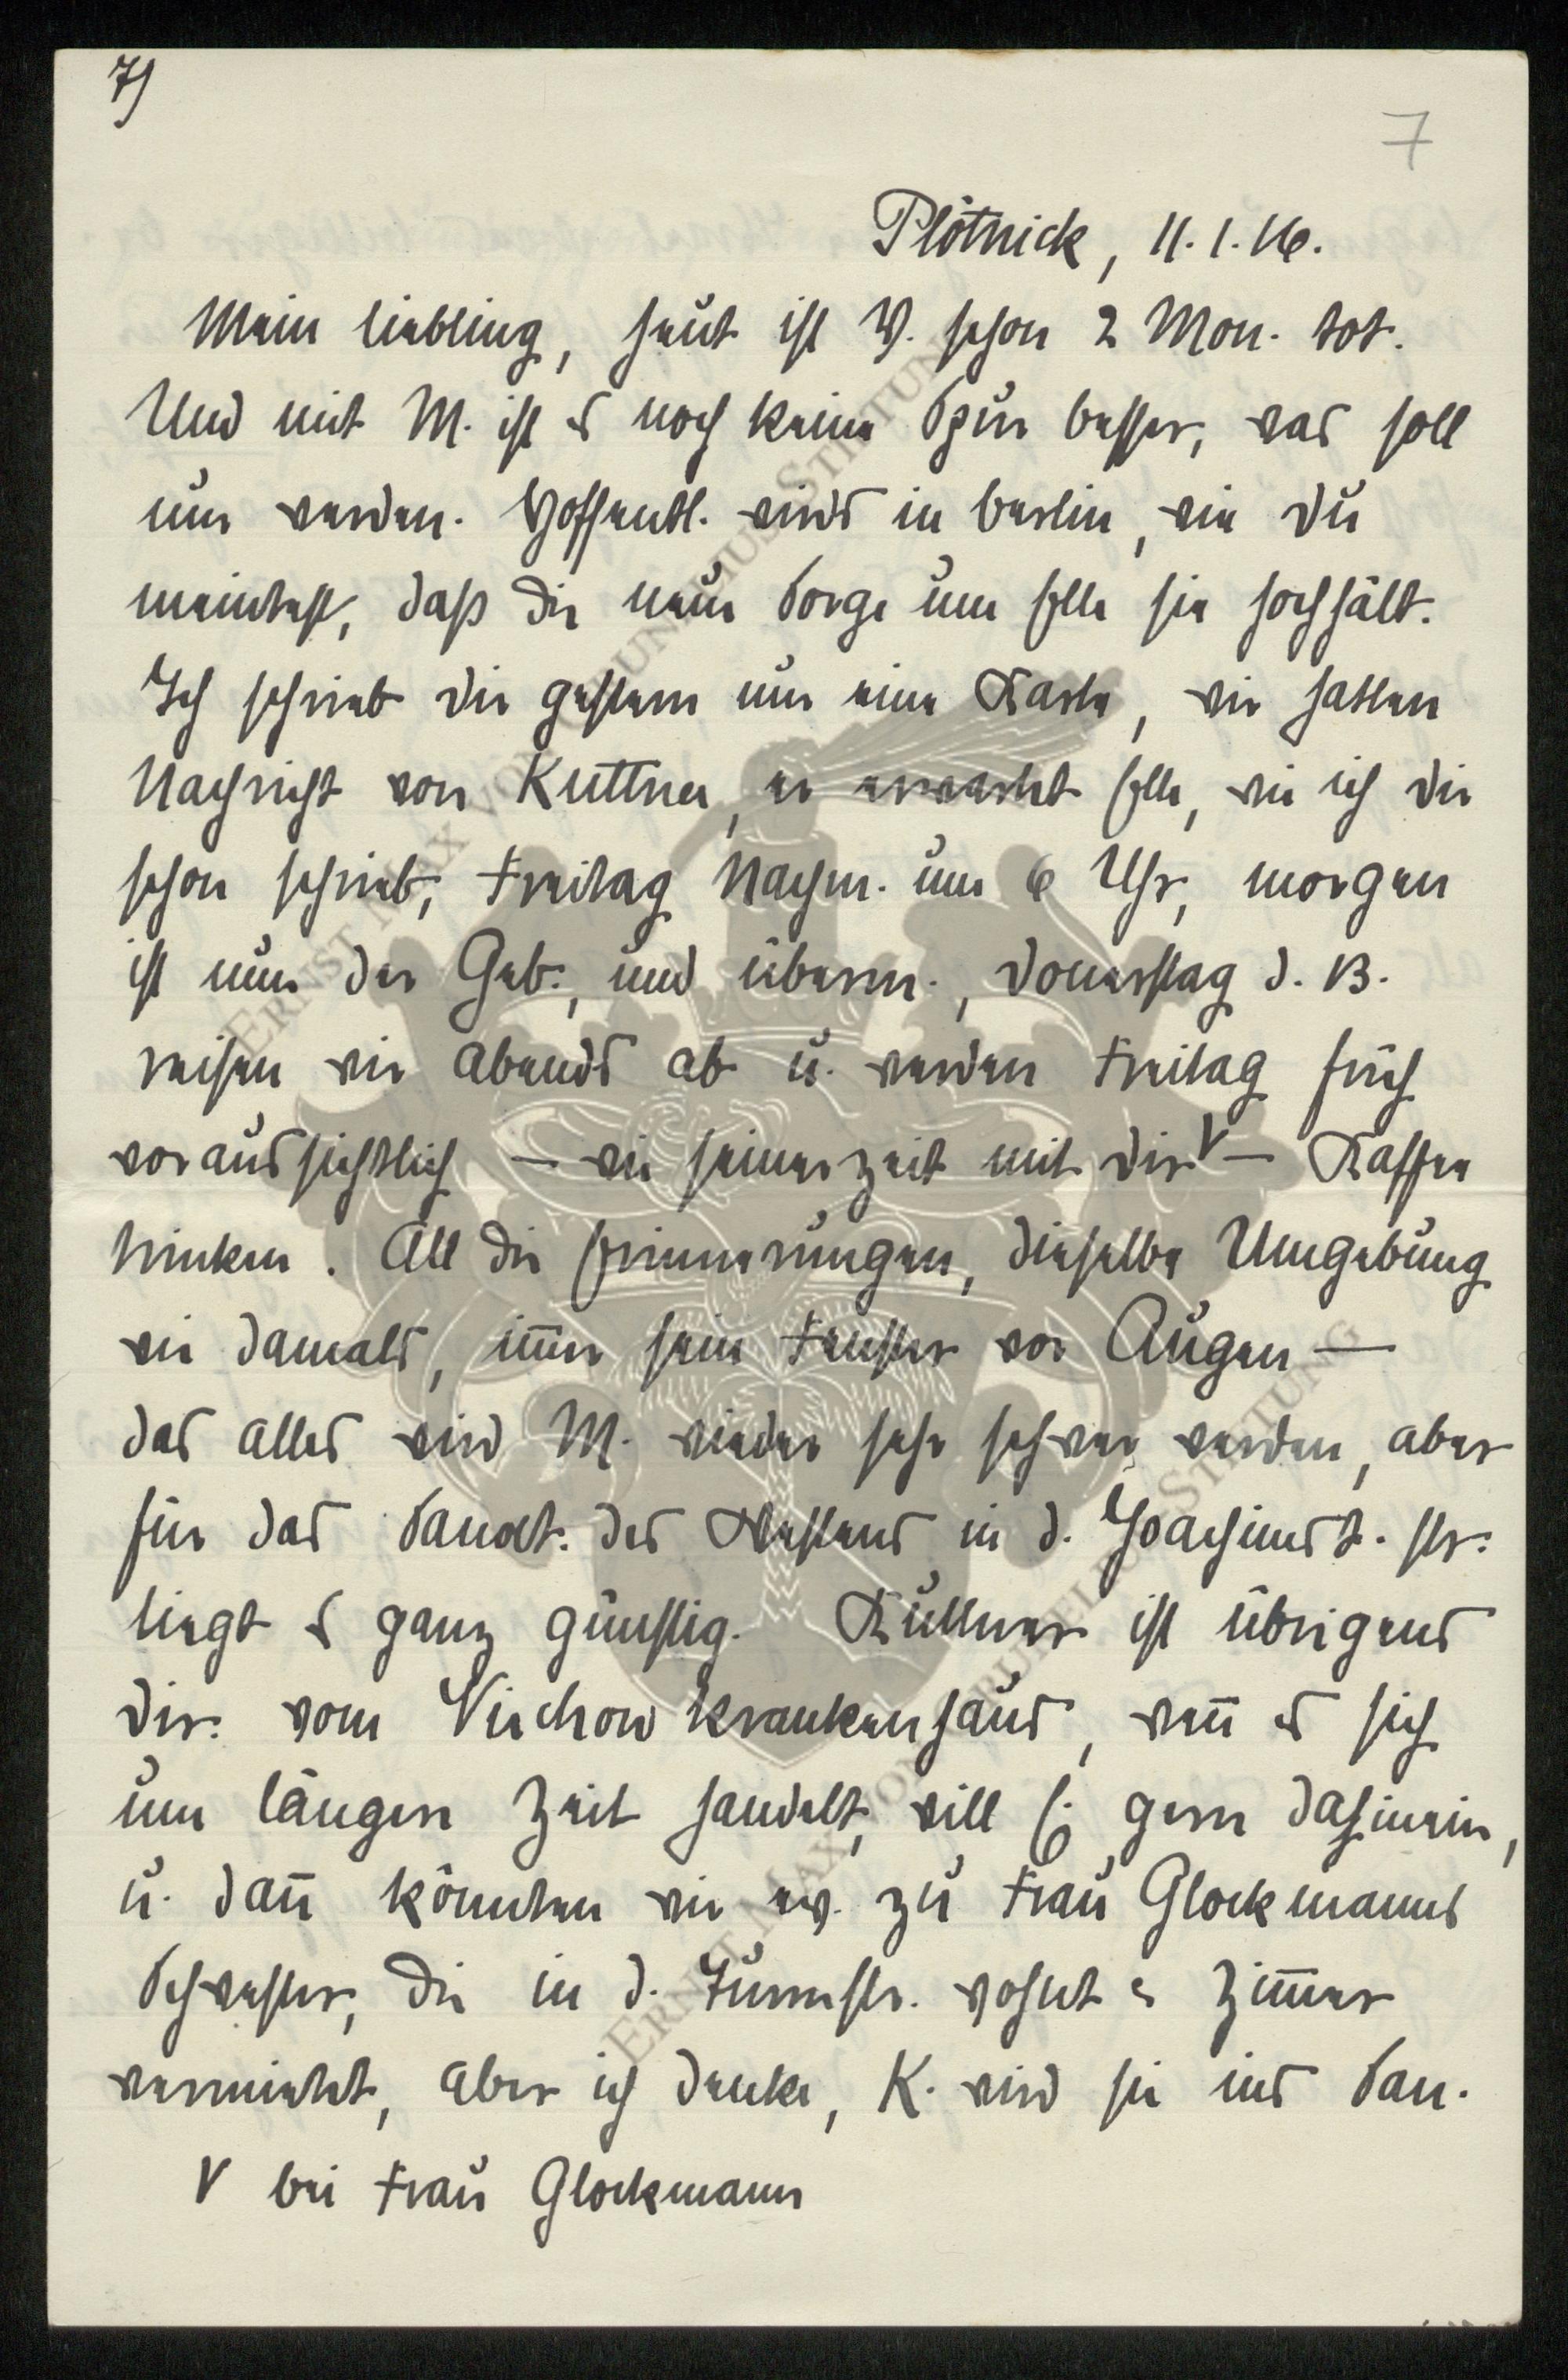 7)
7
Plötnick, 11.1.16.
Mein Liebling, heut ist V. schon 2 Mon. tot.
Und mit M. ist es noch keine Spur besser, was soll
nur werden. Hoffentl. wirds in Berlin, wie Du
meintest, daß die neue Sorge um Elle sie hochhält.
Ich schrieb Dir gestern nur eine Karte, wir hatten
Nachricht von Kuttner, er erwartet Elle, wie ich Dir
schon schrieb, Freitag Nachm. um 6 Uhr, morgen
ist nun der Geb., und überm., Donnerstag d. 13.
reisen wir abends ab u. werden Freitag früh
voraussichtlich – wie seinerzeit mit Dir V – Kaffee
trinken. All die Erinnerungen, dieselbe Umgebung
wie damals, immer sein Fenster vor Augen –
das alles wird M. wieder sehr schwer werden, aber
für das Sanat. des Westens in d. Joachimst. str.
liegt es ganz günstig. Kuttner ist übrigens
Dir. vom Virchow Krankenhaus, wenn es sich
um längere Zeit handelt, will E. gern dahinein,
u. dann könnten wir ev. zu Frau Glockmanns
Schwester, die in d. Turmstr. wohnt u. Zimmer
vermietet, aber ich denke, K. wird sie ins San.
V bei Frau Glockmann
ERNST MAX VON GRUNELIUS STIFTUNG
ERNST MAX VON GRUNELIUS STIFTUNG